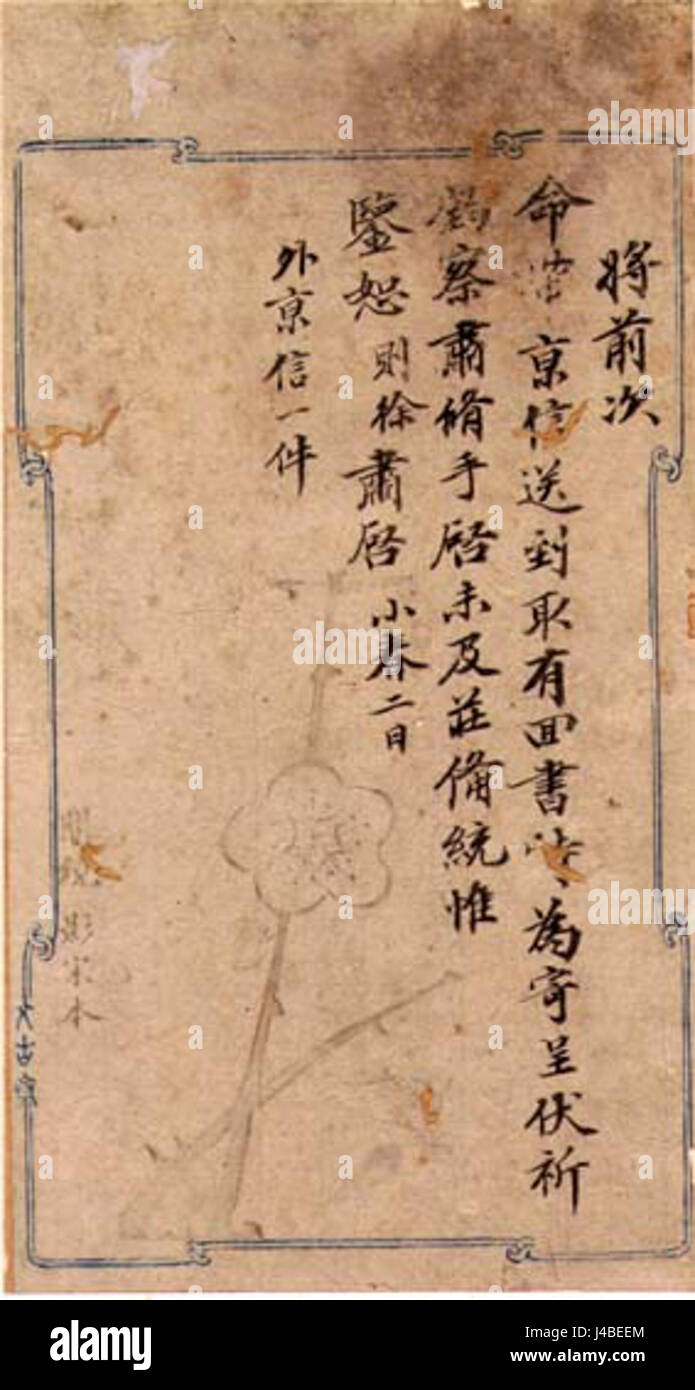 將前次
命帶京信送到取有回書 為寄呈伏祈
鑒察肅脩手啓未及莊備統惟
鑒恕則徐肅啓 小春二日
外京信一件
影宋本
大吉
alamy
Image ID: J4BEEM
www.alamy.com